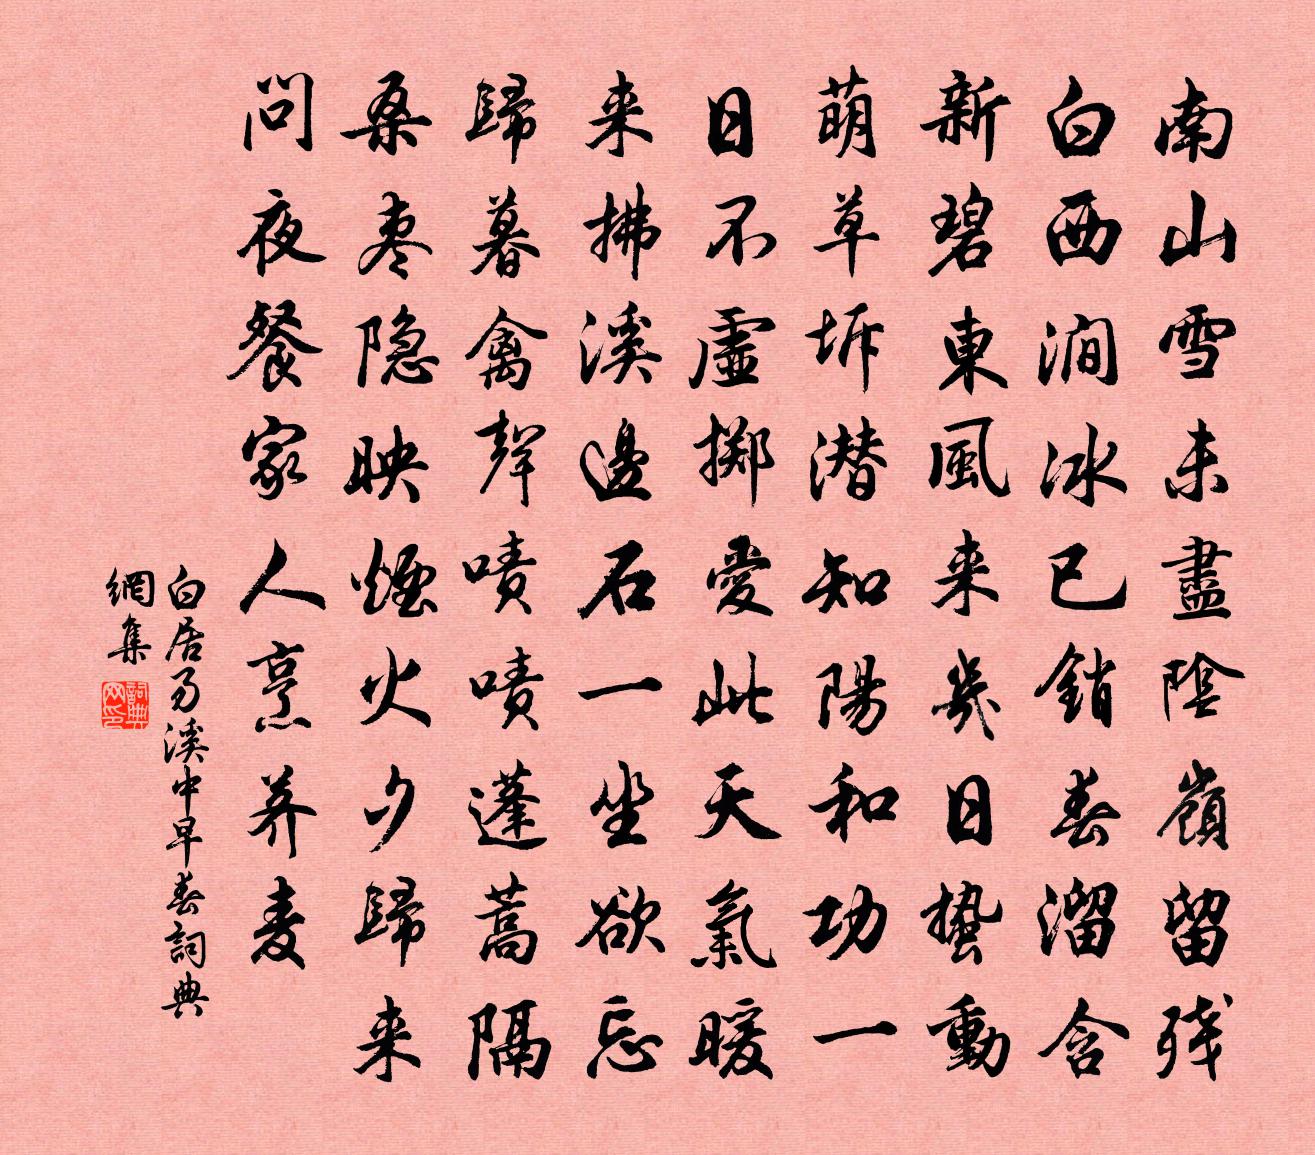 南山雪未盡陰嶺留残
白西澗冰已銷春溜含
新碧東風来幾日蟄動
萌草坼潜知陽和功一
日不虛擲愛此天氣暖
来拂溪邊石一坐欲忘
歸暮禽聲嘖嘖蓬蒿隔
桑枣隐映煙火夕歸来
問夜餐家人烹荠麦
白居易溪中早春詞典
網集
詞典
网印